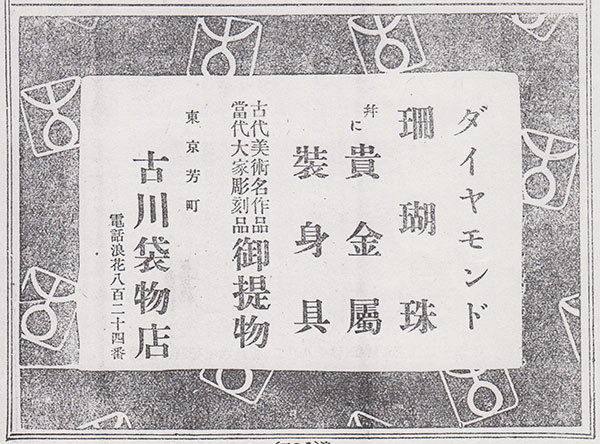 ダイヤモンド
珊瑚珠
幷に貴金屬
裝身具
古代美術名作品
當代大家彫刻品
御提物
東京芳町
古川袋物店
電話浪花八百二十四番